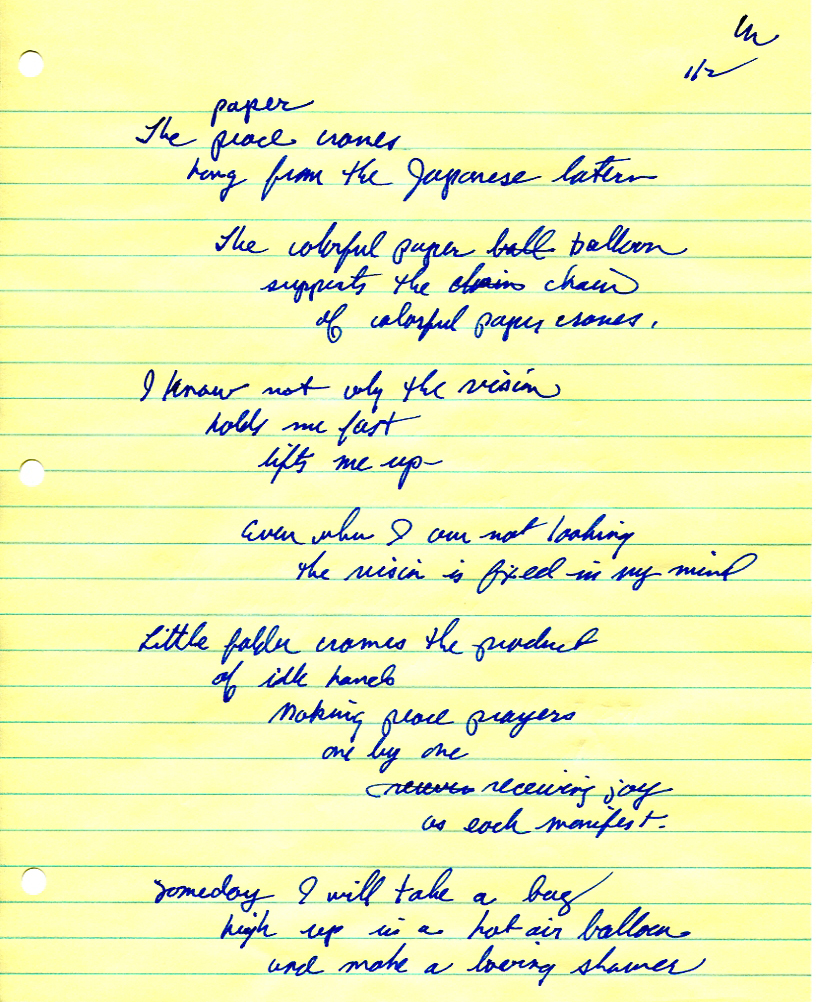 11/2
paper
The peace cranes
hang from the Japanese latern
The colorful paper ball balloon
supports the chains chain
of colorful paper cranes.
I know not why the vision
holds me fast
lifts me up-
Even when I am not looking
the vision is fixed in my mind
Little folder cranes the product
of idle hands
Making peace prayers
one by one
receiving joy
as each manifest.
Someday I will take a bag
high up in a hot air balloon
and make a loving shower